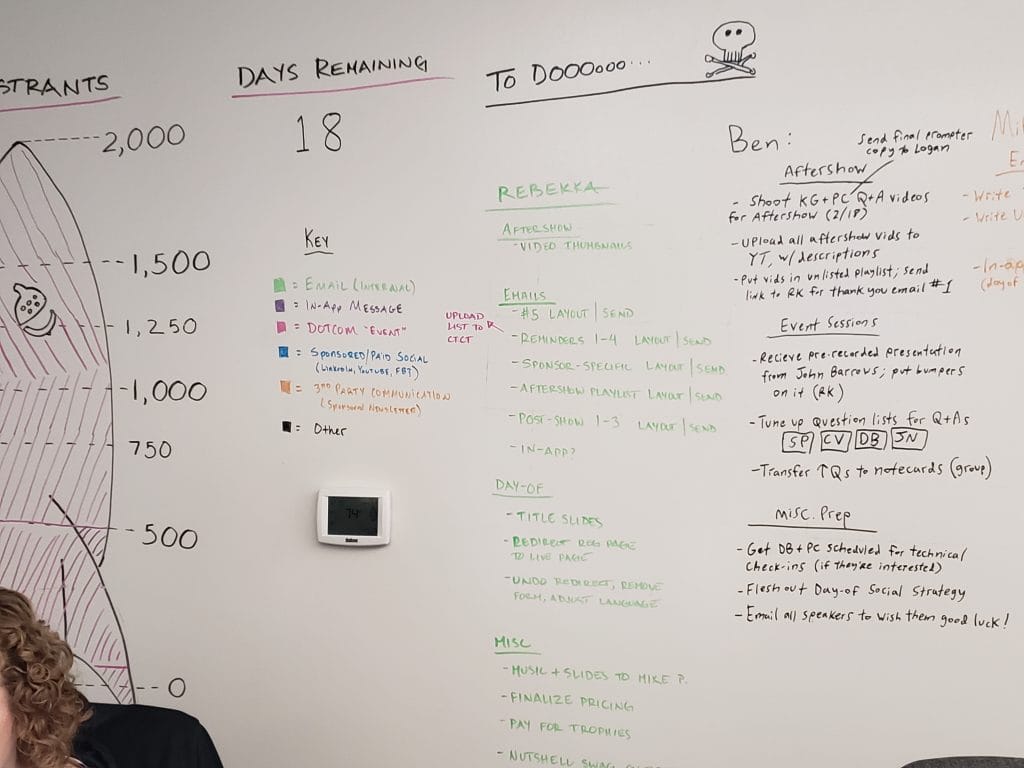 STRANTS
2,000
1,500
1,250
1,000
750
500
0
DAYS REMAINING
18
KEY
= EMAIL (INTERNAL)
= IN-APP MESSAGE
= DOTCOM "EVENT"
= SPONSORED/PAID SOCIAL
(LINKEDIN, YOUTUBE, FB?)
= 3RD PARTY COMMUNICATION
(SPONSORED NEWSLETTER)
= OTHER
74°
TO DOOOOOO...
REBEKKA
AFTERSHOW
- VIDEO THUMBNAILS
EMAILS
- #5 LAYOUT | SEND
UPLOAD
LIST TO
CTCT
- REMINDERS 1-4 LAYOUT | SEND
- SPONSOR-SPECIFIC LAYOUT | SEND
- AFTERSHOW PLAYLIST LAYOUT | SEND
- POST-SHOW 1-3 LAYOUT | SEND
- IN-APP?
DAY-OF
- TITLE SLIDES
- REDIRECT REG PAGE
TO LIVE PAGE
- UNDO REDIRECT, REMOVE
FORM, ADJUST LANGUAGE
MISC
- MUSIC + SLIDES TO MIKE P.
- FINALIZE PRICING
- PAY FOR TROPHIES
- NUTSHELL SWAG
Ben:
Send final prompter
copy to Logan
Aftershow
- Shoot KG+PC Q+A videos
for Aftershow (2/18)
- Upload all aftershow vids to
YT, w/ descriptions
- Put vids in unlisted playlist; send
link to RK for thank you email #1
Event Sessions
- Recieve pre-recorded presentation
from John Barrows; put bumpers
on it (RK)
- Tune up question lists for Q+As
SP CV DB JN
- Transfer TQs to notecards (group)
Misc. Prep
- Get DB+PC scheduled for technical
check-ins (if they're interested)
- Flesh out Day-of Social Strategy
- Email all speakers to wish them good luck!
Mi
E
- Write
- Write U
- In-ap
(day of